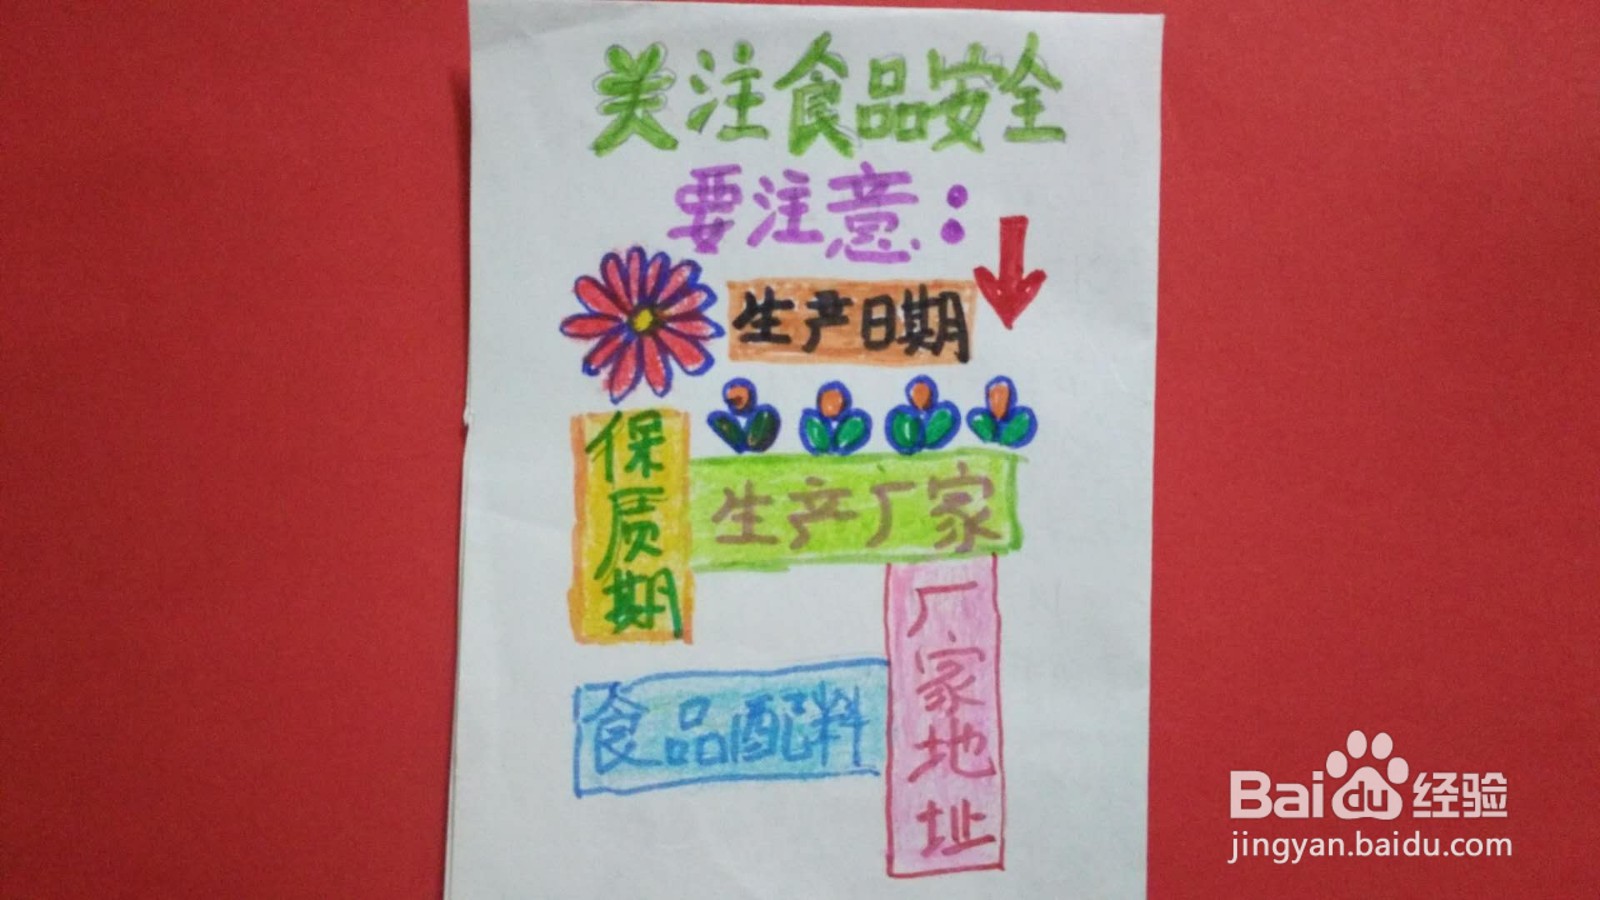 关注食品安全
要注意：
生产日期
保质期
生产厂家
厂家地址
食品配料
Baidu经验
jingyan.baidu.com